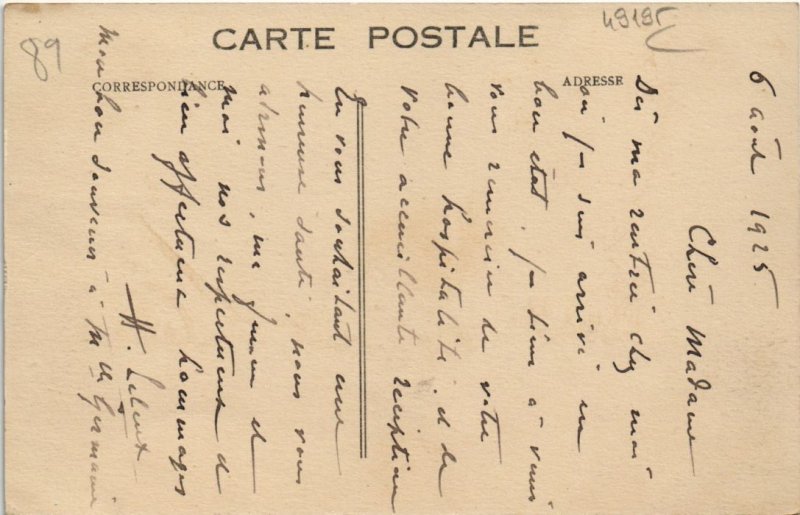 49195
89
CARTE POSTALE
CORRESPONDANCE
ADRESSE
6 août 1925
Chère Madame
Dès ma rentrée chez moi
où je suis arrivé en
bon état, je tiens à vous
vous remercier de votre
bonne hospitalité, et de
votre accueillante réception
En vous souhaitant une
heureuse santé, nous vous
adressons, ma femme et
moi nos respectueux et
bien affectueux hommages
H.
Mon bon souvenir à Mlle Germaine